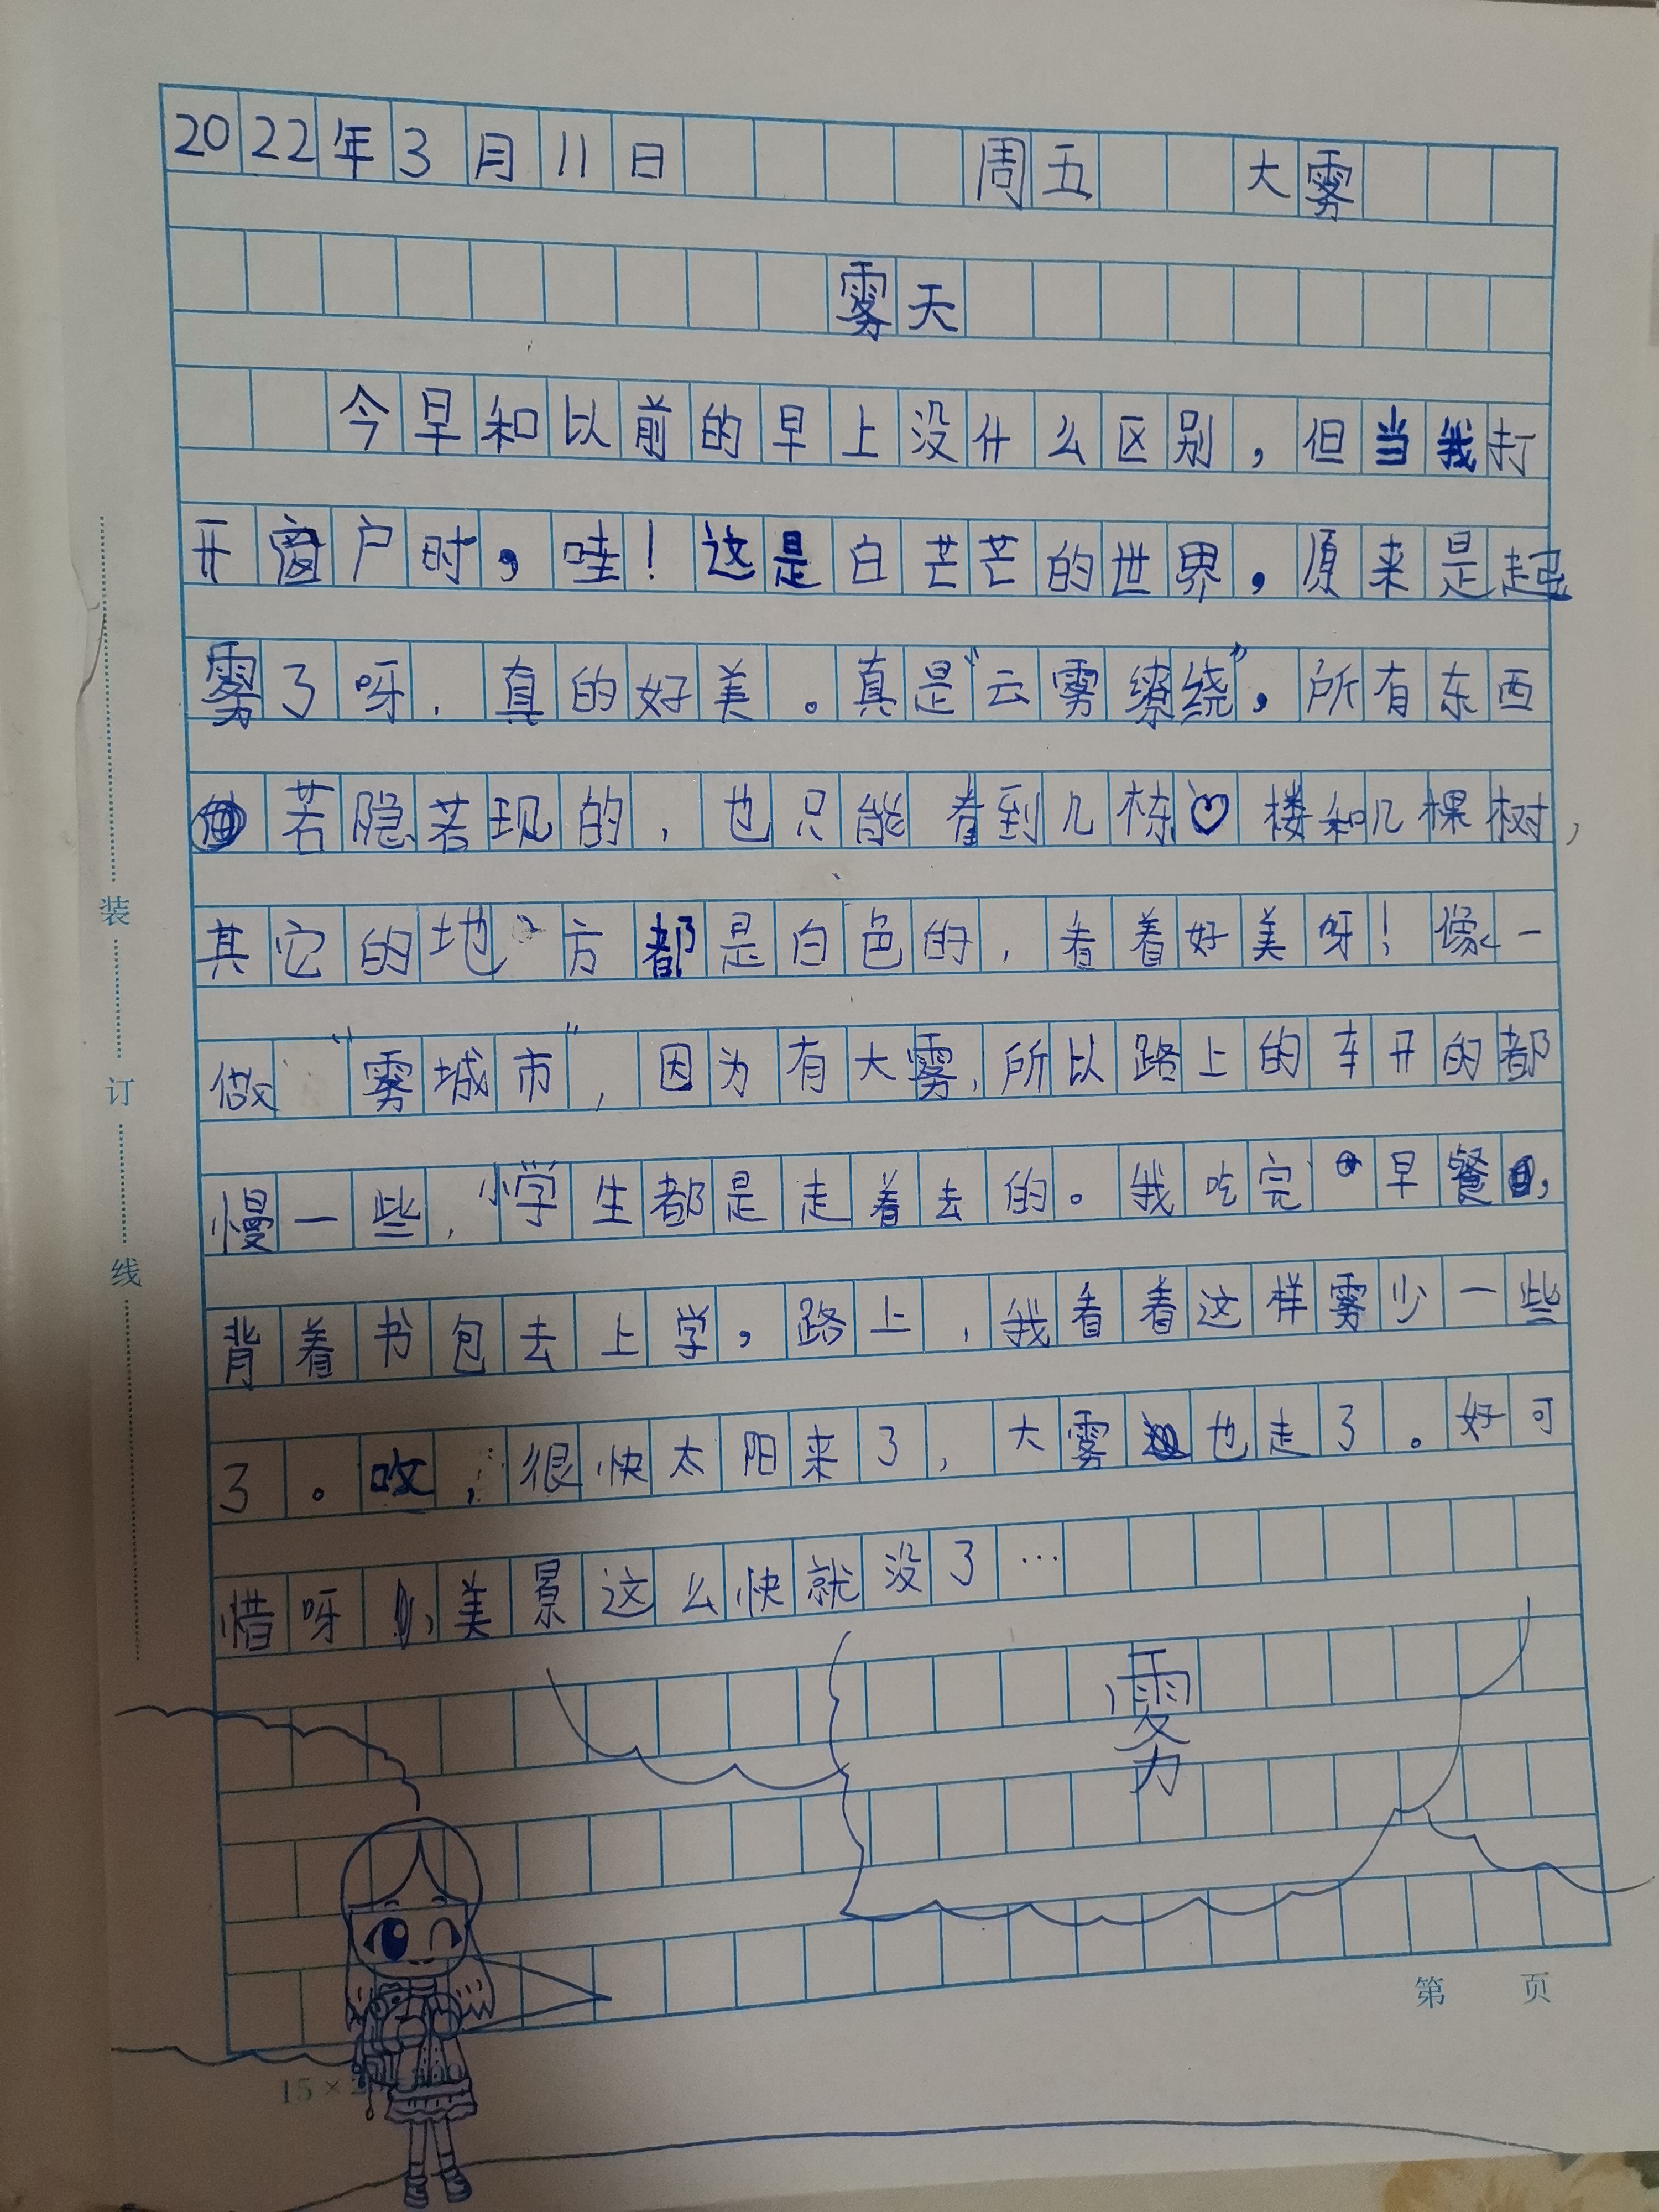 2022年3月11日 周五 大雾
雾天
今早和以前的早上没什么区别,但当我打
开窗户时,哇!这是白芒芒的世界,原来是起
雾了呀,真的好美。真是“云雾缭绕”,所有东西
若隐若现的,也只能看到几栋楼和几棵树,
其它的地方都是白色的,看着好美呀!像一
做“雾城市”,因为有大雾,所以路上的车开的都
慢一些,小学生都是走着去的。我吃完早餐,
背着书包去上学,路上,我看着这样雾少一些
了。哎,很快太阳来了,大雾也走了。好可
惜呀,美景这么快就没了…
雾
装
订
线
第 页
15×